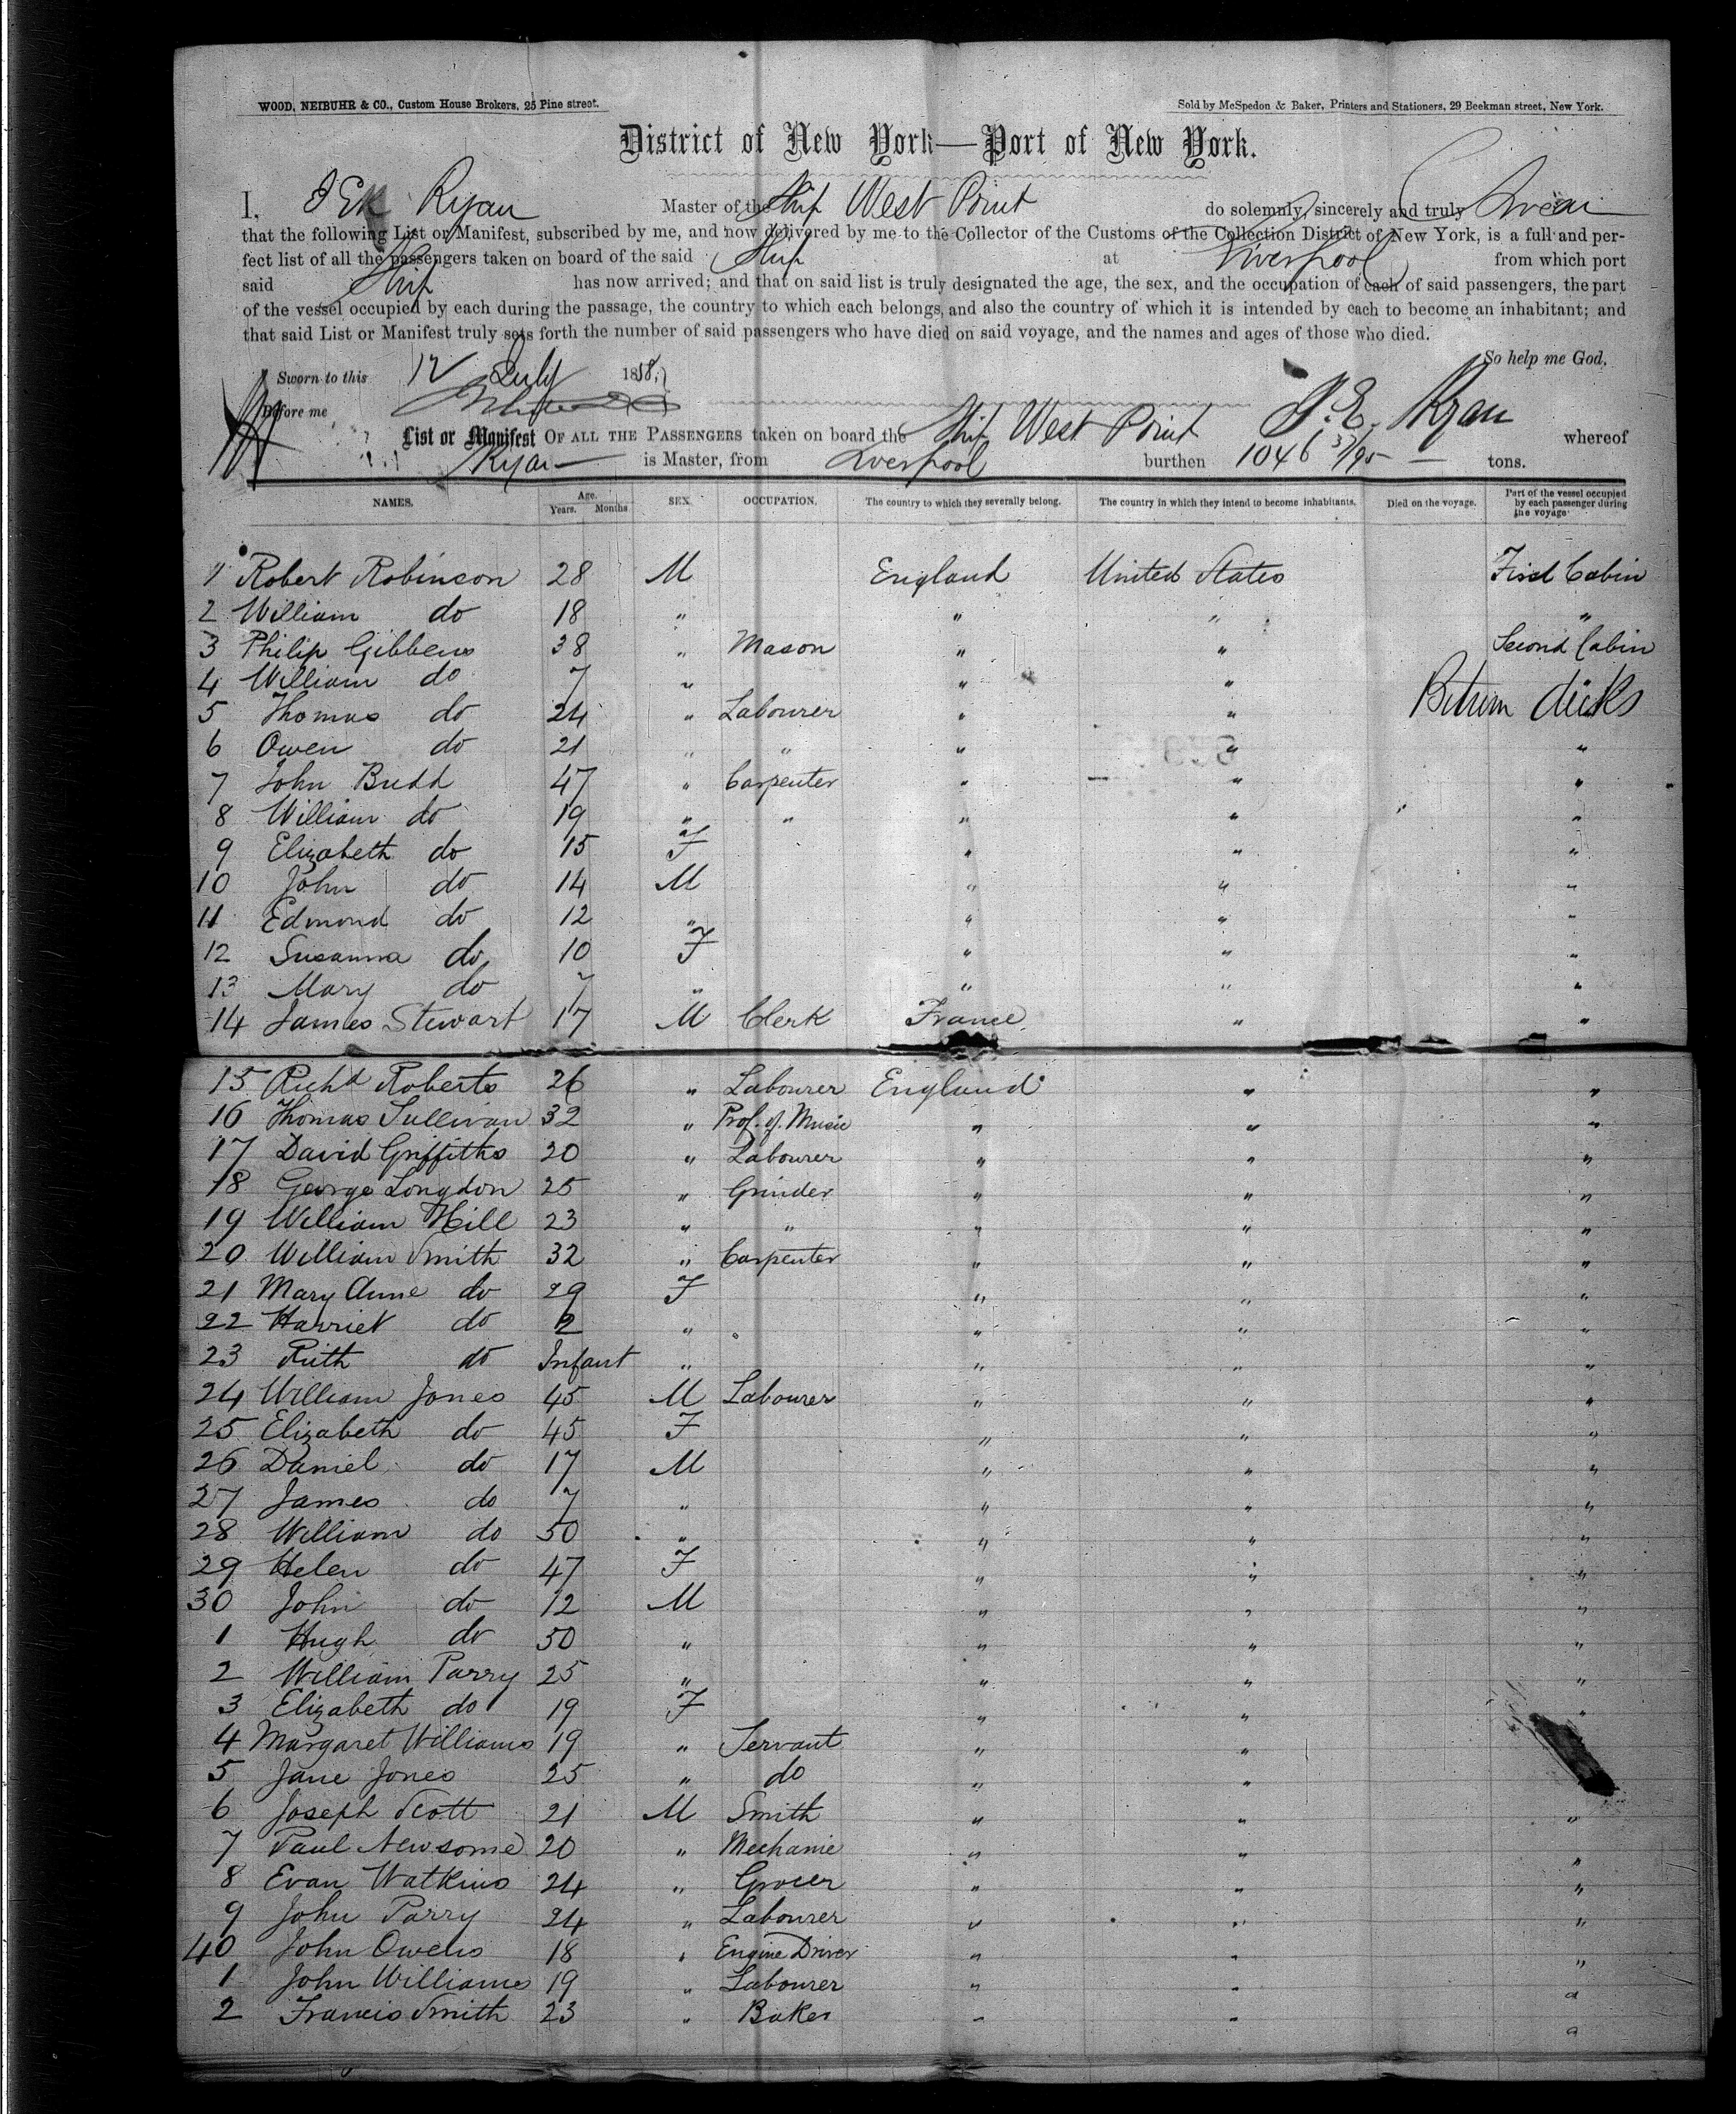 WOOD, NEIBUHR & CO., Custom House Brokers, 25 Pine street.
Sold by McSpedon & Baker, Printers and Stationers, 29 Beekman street, New York.
District of New York—Port of New York.
I, Ryan Master of the Ship West Point do solemnly, sincerely and truly Swear
that the following List or Manifest, subscribed by me, and now delivered by me to the Collector of the Customs of the Collection District of New York, is a full and per-
fect list of all the passengers taken on board of the said Ship at Liverpool from which port
said Ship has now arrived; and that on said list is truly designated the age, the sex, and the occupation of each of said passengers, the part
of the vessel occupied by each during the passage, the country to which each belongs, and also the country of which it is intended by each to become an inhabitant; and
that said List or Manifest truly sets forth the number of said passengers who have died on said voyage, and the names and ages of those who died.
So help me God.
Sworn to this 12 July 1858,
Before me
J. E. Ryan
List or Manifest OF ALL THE PASSENGERS taken on board the Ship West Point whereof
Ryan is Master, from Liverpool burthen 1046 37/95 tons.
NAMES. Age. Years. Months SEX OCCUPATION. The country to which they severally belong. The country in which they intend to become inhabitants. Died on the voyage. Part of the vessel occupied by each passenger during the voyage
1 Robert Robinson 28 M England United States First Cabin
2 William do 18 " " " "
3 Philip Gibbens 38 " Mason " " Second Cabin
4 William do 7 " " "
5 Thomas do 24 " Labourer " " Between decks
6 Owen do 21 " " " " "
7 John Budd 47 " Carpenter " " "
8 William do 19 " " " " "
9 Elizabeth do 15 F " " "
10 John do 14 M " " "
11 Edmond do 12 " " " "
12 Susanna do 10 F " " "
13 Mary do 7 " " " "
14 James Stewart 17 M Clerk France " "
15 Richd Roberts 26 " Labourer England " "
16 Thomas Sullivan 32 " Prof. of. Music " " "
17 David Griffiths 20 " Labourer " " "
18 George Longdon 25 " Grinder " " "
19 William Hill 23 " " " " "
20 William Smith 32 " Carpenter " " "
21 Mary Anne do 29 F " " "
22 Harriet do 2 " " " "
23 Ruth do Infant " " " "
24 William Jones 45 M Labourer " " "
25 Elizabeth do 45 F " " "
26 Daniel do 17 M " " "
27 James do 7 " " " "
28 William do 50 " " " "
29 Helen do 47 F " " "
30 John do 12 M " " "
1 Hugh do 50 " " " "
2 William Parry 25 " " " "
3 Elizabeth do 19 F " " "
4 Margaret Williams 19 " Servant " "
5 Jane Jones 25 " do " "
6 Joseph Scott 21 M Smith " " "
7 Paul Newsome 20 " Mechanic " " "
8 Evan Watkins 24 " Grocer " " "
9 John Parry 24 " Labourer " " "
40 John Owens 18 " Engine Driver " " "
1 John Williams 19 " Labourer " " "
2 Francis Smith 23 " Baker " " "